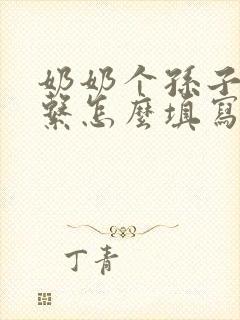 奶奶个孫子
繫怎麼填寫
丁青